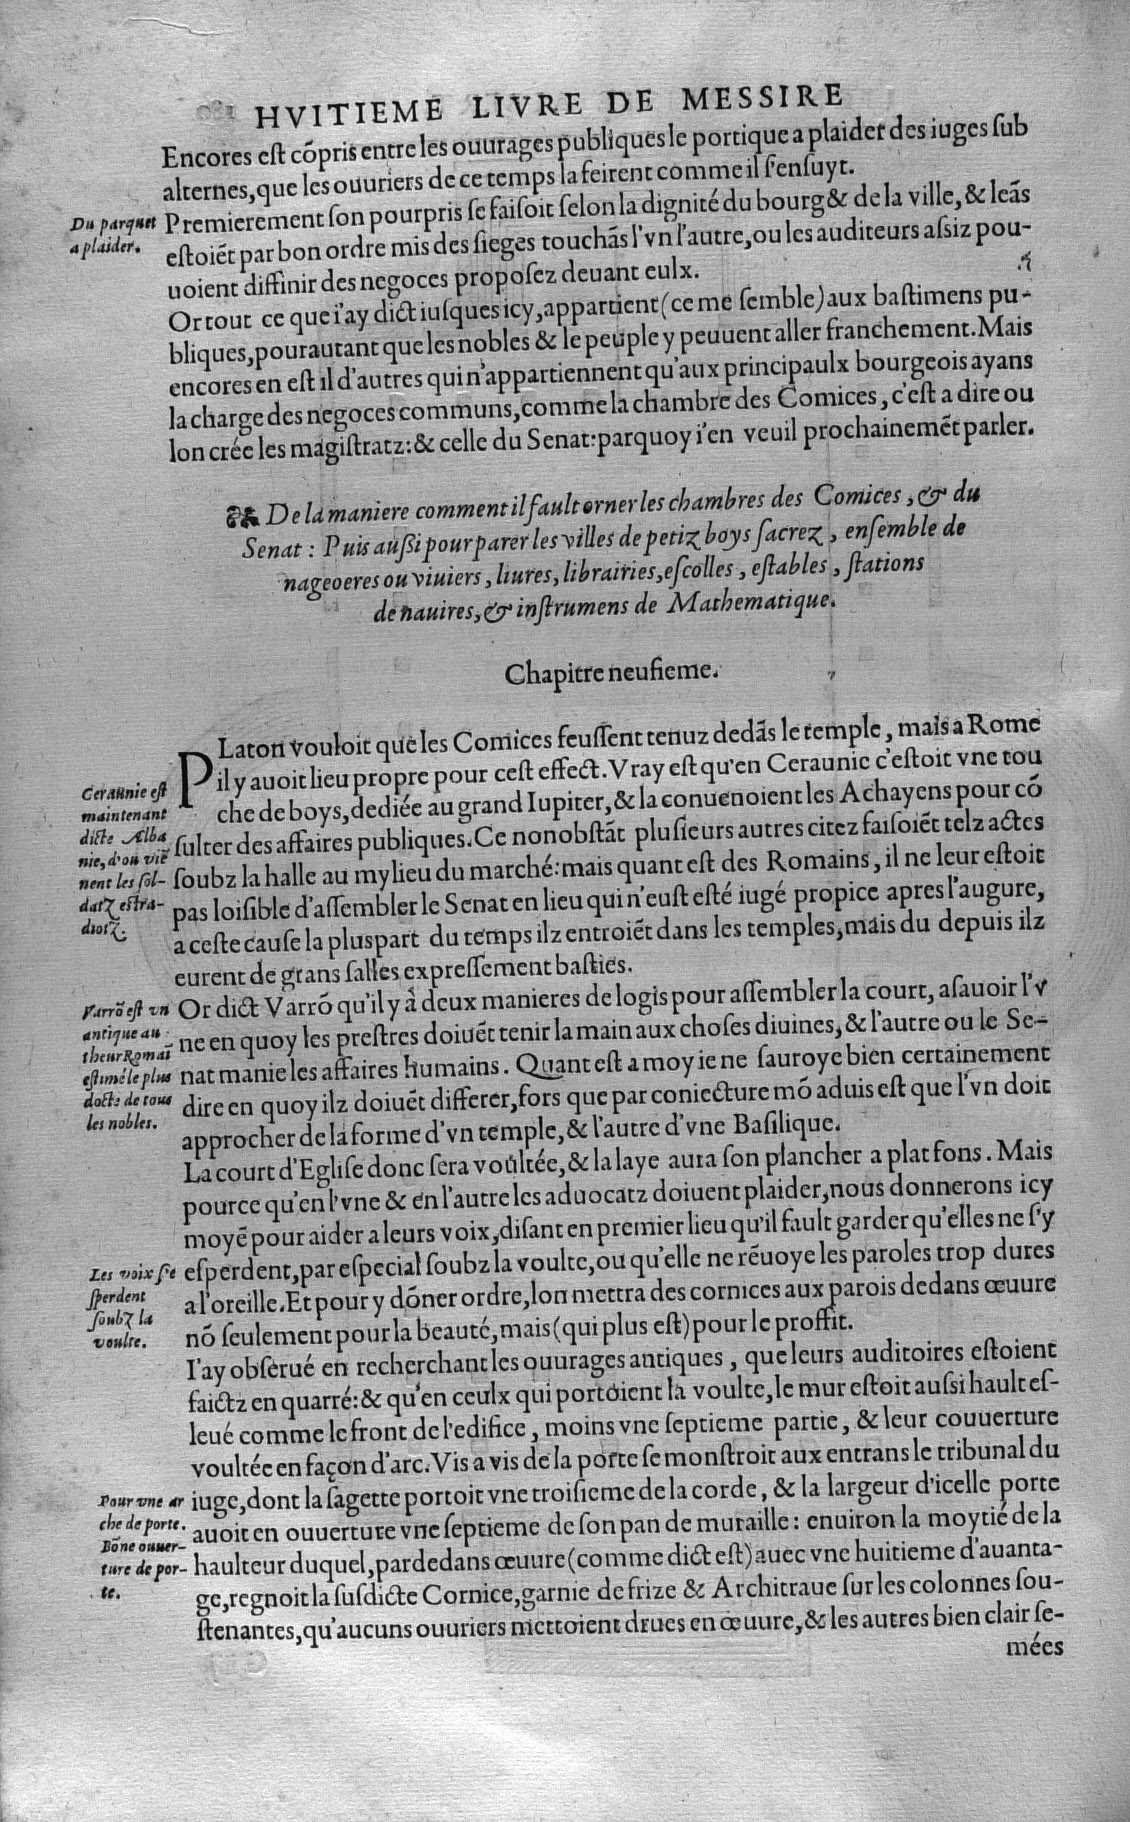 HVITIEME LIVRE DE MESSIRE
Encores est cõpris entre les ouurages publiques le portique a plaider des iuges sub
alternes, que les ouuriers de ce temps la feirent comme il s'ensuyt.
Du parquet
a plaider.
Premierement son pourpris se faisoit selon la dignité du bourg & de la ville, & leãs
estoiẽt par bon ordre mis des sieges touchãs l'vn l'autre, ou les auditeurs assiz pou-
uoient diffinir des negoces proposez deuant eulx.
Or tout ce que i'ay dict iusques icy, appartient (ce me semble) aux bastimens pu-
bliques, pourautant que les nobles & le peuple y peuuent aller franchement. Mais
encores en est il d'autres qui n'appartiennent qu'aux principaulx bourgeois ayans
la charge des negoces communs, comme la chambre des Comices, c'est a dire ou
lon crée les magistratz: & celle du Senat: parquoy i'en veuil prochainemẽt parler.
De la maniere comment il fault orner les chambres des Comices, & du
Senat: Puis aussi pour parer les villes de petiz boys sacrez, ensemble de
nageoeres ou viuiers, liures, librairies, escolles, estables, stations
de nauires, & instrumens de Mathematique.
Chapitre neufieme.
PLaton vouloit que les Comices feussent tenuz dedãs le temple, mais a Rome
il y auoit lieu propre pour cest effect. Vray est qu'en Ceraunie c'estoit vne tou
che de boys, dediée au grand Iupiter, & la conuenoient les Achayens pour cõ
sulter des affaires publiques. Ce nonobstãt plusieurs autres citez faisoiẽt telz actes
soubz la halle au mylieu du marché: mais quant est des Romains, il ne leur estoit
pas loisible d'assembler le Senat en lieu qui n'eust esté iugé propice apres l'augure,
a ceste cause la pluspart du temps ilz entroiẽt dans les temples, mais du depuis ilz
eurent de grans salles expressement basties.
Ceraunie est
maintenant
dicte Alba
nie, d'ou viẽ
nent les sol-
datz estra-
diotz.
Or dict Varrõ qu'il y à deux manieres de logis pour assembler la court, asauoir l'v
ne en quoy les prestres doiuẽt tenir la main aux choses diuines, & l'autre ou le Se-
nat manie les affaires humains. Quant est a moy ie ne sauroye bien certainement
dire en quoy ilz doiuẽt differer, fors que par coniecture mõ aduis est que l'vn doit
approcher de la forme d'vn temple, & l'autre d'vne Basilique.
Varrõ est vn
antique au
theur Romaĩ
estimé le plus
docte de tous
les nobles.
La court d'Eglise donc sera voultée, & la laye aura son plancher a plat fons. Mais
pource qu'en l'vne & en l'autre les aduocatz doiuent plaider, nous donnerons icy
moyẽ pour aider a leurs voix, disant en premier lieu qu'il fault garder qu'elles ne s'y
esperdent, par especial soubz la voulte, ou qu'elle ne rẽuoye les paroles trop dures
a l'oreille. Et pour y dõner ordre, lon mettra des cornices aux parois dedans œuure
nõ seulement pour la beauté, mais (qui plus est) pour le proffit.
Les voix se
sperdent
soubz la
voulte.
I'ay obserué en recherchant les ouurages antiques, que leurs auditoires estoient
faictz en quarré: & qu'en ceulx qui portoient la voulte, le mur estoit aussi hault es-
leué comme le front de l'edifice, moins vne septieme partie, & leur couuerture
voultée en façon d'arc. Vis a vis de la porte se monstroit aux entrans le tribunal du
iuge, dont la sagette portoit vne troisieme de la corde, & la largeur d'icelle porte
auoit en ouuerture vne septieme de son pan de muraille: enuiron la moytié de la
haulteur duquel, par dedans œuure (comme dict est) auec vne huitieme d'auanta-
ge, regnoit la susdicte Cornice, garnie de frize & Architraue sur les colonnes sou-
stenantes, qu'aucuns ouuriers mettoient drues en œuure, & les autres bien clair se-
Pour vne ar
che de porte.
Bõne ouuer-
ture de por-
te.
mées